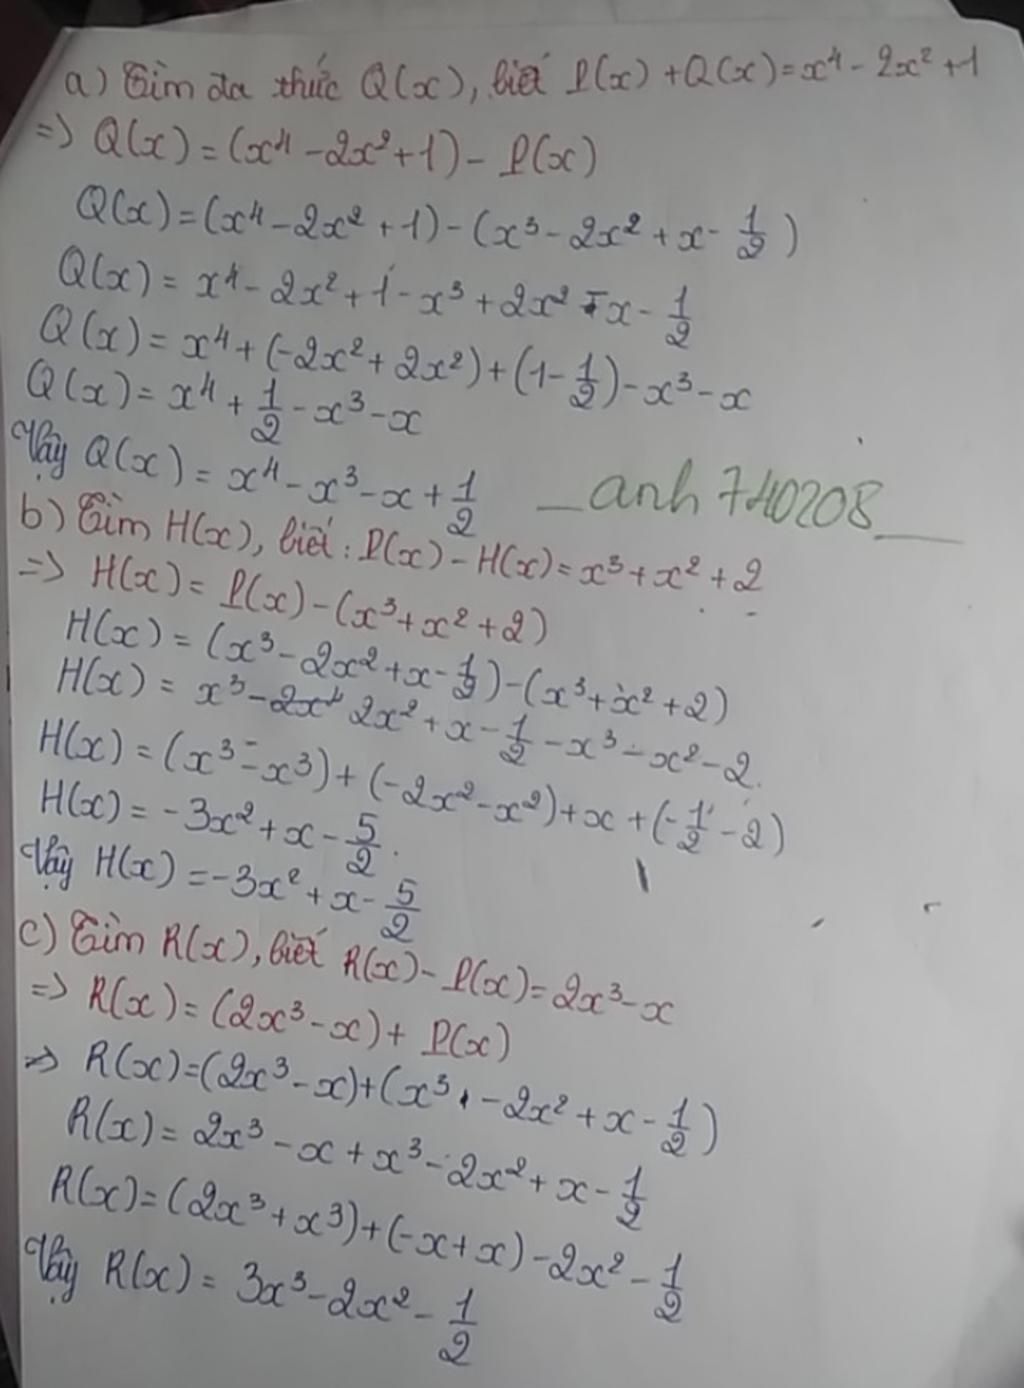 a) Tìm đa thức Q(x), biết P(x) + Q(x) = x⁴ - 2x² + 1
=> Q(x) = (x⁴ - 2x² + 1) - P(x)
Q(x) = (x⁴ - 2x² + 1) - (x³ - 2x² + x - 1/2)
Q(x) = x⁴ - 2x² + 1 - x³ + 2x² - x - 1/2
Q(x) = x⁴ + (-2x² + 2x²) + (1 - 1/2) - x³ - x
Q(x) = x⁴ + 1/2 - x³ - x
Vậy Q(x) = x⁴ - x³ - x + 1/2
_anh740208_
b) Tìm H(x), biết: P(x) - H(x) = x³ + x² + 2
=> H(x) = P(x) - (x³ + x² + 2)
H(x) = (x³ - 2x² + x - 1/2) - (x³ + x² + 2)
H(x) = x³ - 2x⁴ 2x² + x - 1/2 - x³ - x² - 2.
H(x) = (x³ - x³) + (-2x² - x²) + x + (-1/2 - 2)
H(x) = -3x² + x - 5/2.
Vậy H(x) = -3x² + x - 5/2
c) Tìm R(x), biết R(x) - P(x) = 2x³ - x
=> R(x) = (2x³ - x) + P(x)
=> R(x) = (2x³ - x) + (x³ - 2x² + x - 1/2)
R(x) = 2x³ - x + x³ - 2x² + x - 1/2
R(x) = (2x³ + x³) + (-x + x) - 2x² - 1/2
Vậy R(x) = 3x³ - 2x² - 1/2